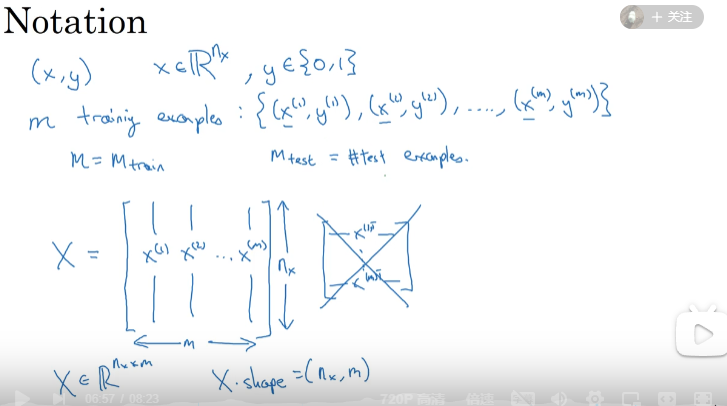 Notation
+ 关注
(x,y) x∈ℝ^{n_x}, y∈{0,1}
m training examples: {(x^{(1)}, y^{(1)}), (x^{(2)}, y^{(2)}), ...., (x^{(m)}, y^{(m)})}
M = M_{train} M_{test} = #test examples.
X = [x^{(1)} x^{(2)} ... x^{(m)}] n_x
x^{(1)T}
x^{(m)T}
m
X ∈ ℝ^{n_x × m} X.shape = (n_x, m)
06:57 / 08:23 720P 高清 倍速